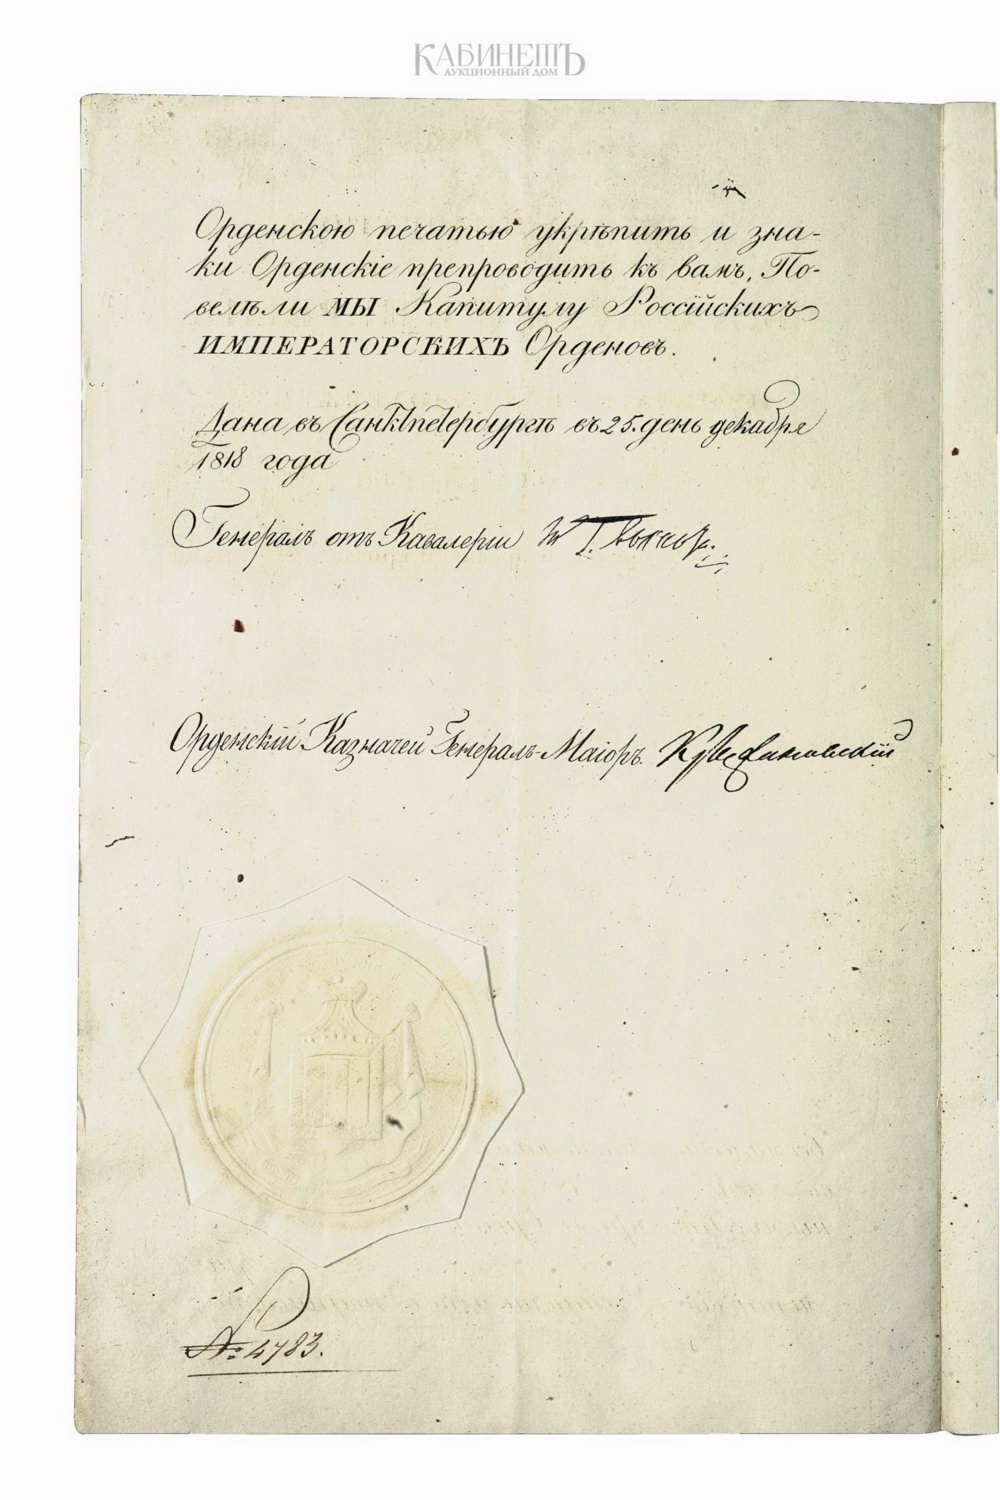 КАБИНЕТЪ
АУКЦИОННЫЙ ДОМ
Орденскою печатью укрѣпить и зна-
ки Орденскіе препроводить къ вамъ, По-
велѣли МЫ Капитулу Россійскихъ
ИМПЕРАТОРСКИХЪ Орденовъ.
Дана въ Санктпетербургѣ въ 25. день декабря
1818 года
Генералъ отъ Кавалеріи
Орденскій Казначей Генералъ-Маіоръ.
№: 4783.